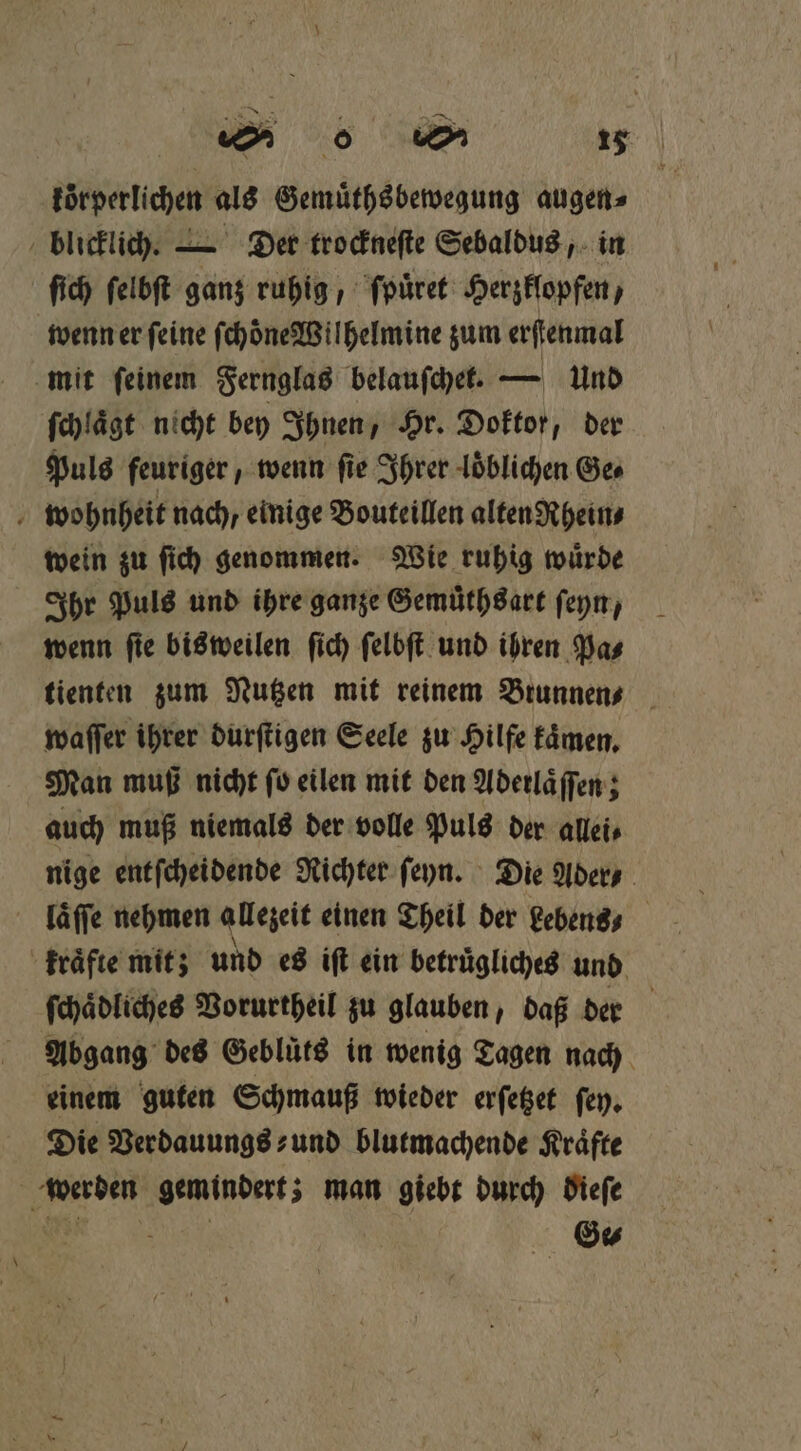 o 15
koͤrperlichen als Gemuͤthsbewegung augen⸗
blicklich. — Der trockneſte Sebaldus, in
ſich ſelbſt ganz ruhig, ſpuͤret Herzklopfen,
wenn er ſeine ſchoͤne Wilhelmine zum erſtenmal
mit ſeinem Fernglas belauſchet. — Und
ſchlaͤgt nicht bey Ihnen, Hr. Doktor, der
Puls feuriger, wenn ſie Ihrer loͤblichen Ge⸗
wohnheit nach, einige Bouteillen alten Rhein⸗
wein zu ſich genommen. Wie ruhig wuͤrde
Ihr Puls und ihre ganze Gemuͤthsart ſeyn,
wenn ſie bisweilen ſich ſelbſt und ihren Pa⸗
tienten zum Nutzen mit reinem Brunnen⸗
waſſer ihrer durſtigen Seele zu Hilfe kaͤmen.
Man muß nicht ſo eilen mit den Aderlaͤſſen;
auch muß niemals der volle Puls der allei⸗
nige entſcheidende Richter ſeyn. Die Ader⸗
laͤſſe nehmen allezeit einen Theil der Lebens⸗
kraͤfte mit; und es iſt ein betruͤgliches und
ſchaͤdliches Vorurtheil zu glauben, daß der
Abgang des Gebluͤts in wenig Tagen nach
einem guten Schmauß wieder erſetzet ſey.
Die Verdauungs⸗und blutmachende Kraͤfte
werden gemindert; man giebt durch dieſe
Ge⸗